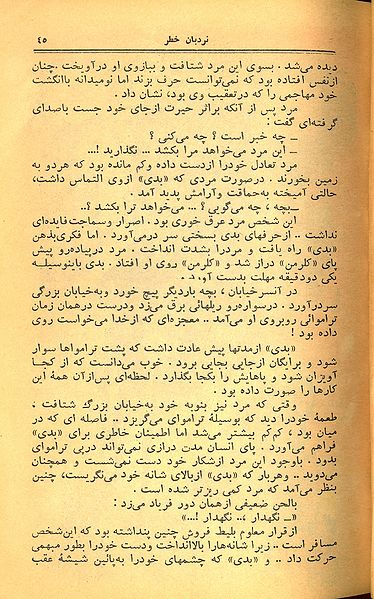 نردبان خطر ٤٥
دیده می‌شد . بسوی این مرد شتافت و ببازوی او درآویخت . چنان
ازنفس افتاده بود که نمی‌توانست حرف بزند اما نومیدانه باانگشت
خود مهاجمی را که درتعقیب وی بود، نشان داد .
مرد پس از آنکه براثر حیرت ازجای خود جست باصدای
گرفته‌ای گفت :
ـ چه خبر است ؟ چه می‌کنی ؟
ـ این مرد می‌خواهد مرا بکشد ... نگذارید !...
مرد تعادل خودرا ازدست داده وکم مانده بود که هردو به
زمین بخورند . درصورت مردی که «بدی» ازوی التماس داشت،
حالتی آمیخته به‌حماقت وآرامش پدید آمد .
ـ بچه ، چه می‌گویی ؟ ... می‌خواهد ترا بکشد ؟..
این شخص مرد عرق خوری بود . اصرار وسماجت‌فایده‌ای
نداشت .. ازحرفهای بدی بسختی سر درمی‌آورد . اما فکری‌بذهن
«بدی» راه یافت و مردرا بشدت انداخت . مرد درپیاده‌رو پیش
پای «کلرمن» دراز شد و «کلرمن» روی او افتاد . بدی باینوسیله
یکی دودقیقه مهلت بدست آورد .
در آنسرخیابان ، بچه باردیگر پیچ خورد وبه‌خیابان بزرگی
سردرآورد . درسواره‌رو ریلهائی برق می‌زد ودرست درهمان زمان
تراموائی روبروی او می‌آمد .. معجزه‌ای که ازخدا می‌خواست روی
داده بود !
«بدی» ازمدتها پیش عادت داشت که پشت تراموا‌ها سوار
شود و برایگان ازجایی بجایی برود . خوب می‌دانست که از کجا
آویزان شود و پاهایش را بکجا بگذارد . لحظه‌ای پس‌ازآن همهٔ این
کارها را صورت داده بود .
وقتی که مرد نیز بنوبه خود به‌خیابان بزرگ شتافت ،
طعمهٔ خودرا دید که بوسیلهٔ تراموای می‌گریزد .. فاصله ای که در
میان بود ، کم‌کم بیشتر می‌شد اما اطمینان خاطری برای «بدی»
فراهم می‌آورد . پای انسان مدت درازی نمی‌تواند درپی تراموای
بدود . باوجود این مرد ازشکار خود دست نمی‌شست و همچنان
می‌دوید .. وهربار که «بدی» ازبالای شانه خود می‌نگریست، چنین
بنظر می‌آمد که مرد کمی ریزتر شده است .
بالحن ضعیفی ازهمان دور فریاد می‌زد :
«ـ نگهدار ،.. نگهدار !...»
ازقرار معلوم بلیط فروش چنین پنداشته بود که این‌شخص
مسافر است .. زیرا شانه‌هارا بالاانداخت ودست خودرا بطور مبهمی
حرکت داد .. و «بدی» که چشمهای خودرا به‌پائین شیشهٔ عقب